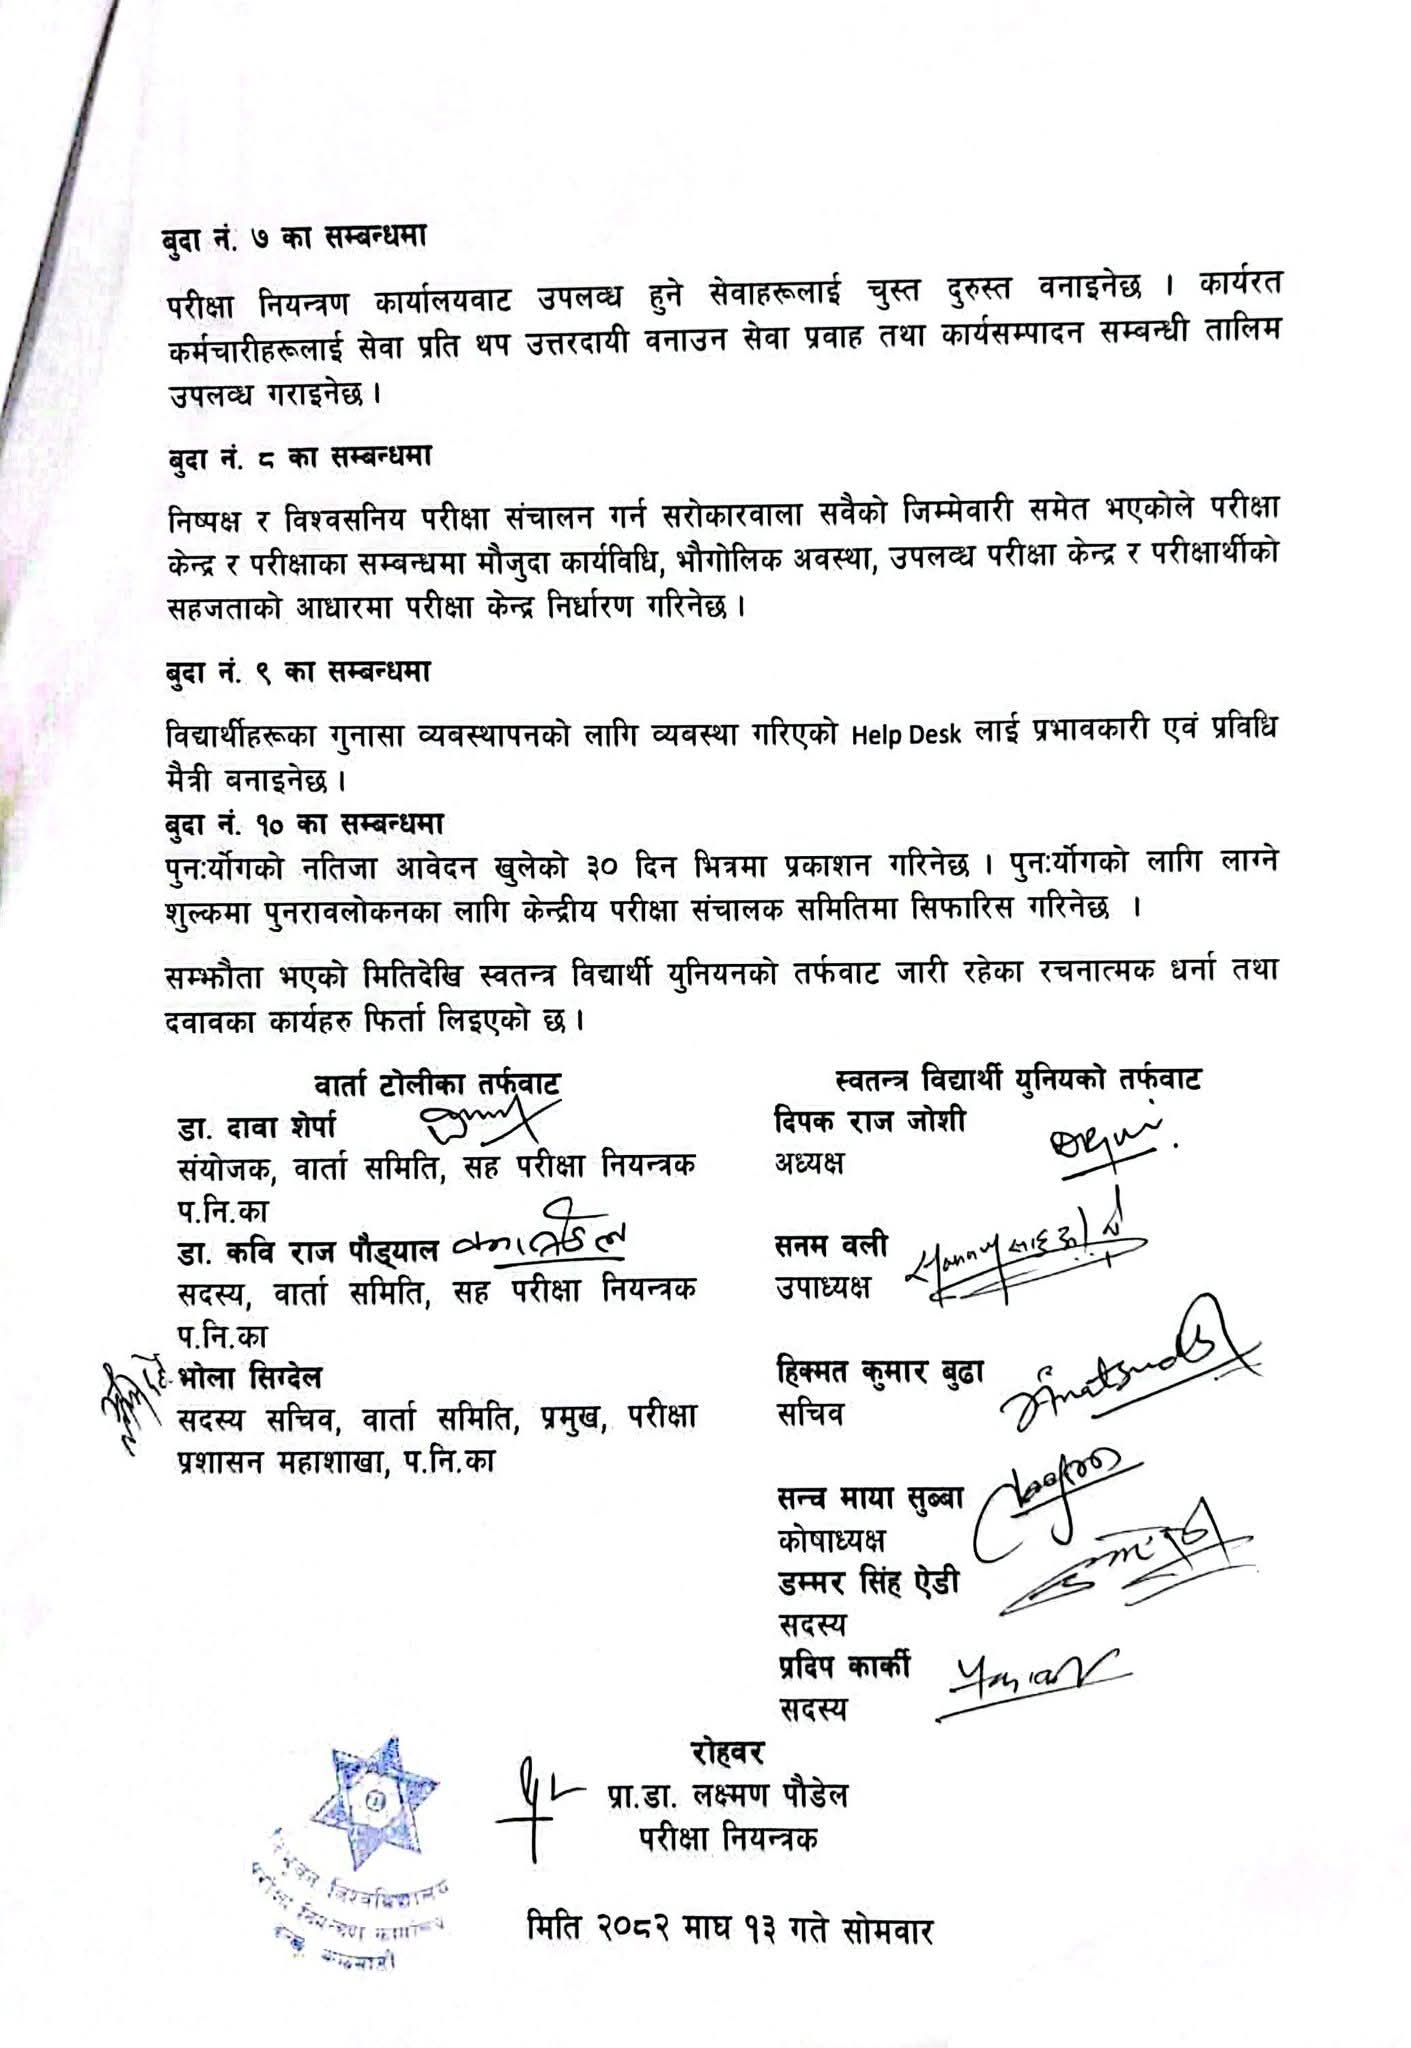 बुदा नं. ७ का सम्बन्धमा
परीक्षा नियन्त्रण कार्यालयवाट उपलव्ध हुने सेवाहरूलाई चुस्त दुरुस्त वनाइनेछ । कार्यरत
कर्मचारीहरूलाई सेवा प्रति थप उत्तरदायी वनाउन सेवा प्रवाह तथा कार्यसम्पादन सम्बन्धी तालिम
उपलव्ध गराइनेछ ।
बुदा नं. ८ का सम्बन्धमा
निष्पक्ष र विश्वसनिय परीक्षा संचालन गर्न सरोकारवाला सवैको जिम्मेवारी समेत भएकोले परीक्षा
केन्द्र र परीक्षाका सम्बन्धमा मौजुदा कार्यविधि, भौगोलिक अवस्था, उपलव्ध परीक्षा केन्द्र र परीक्षार्थीको
सहजताको आधारमा परीक्षा केन्द्र निर्धारण गरिनेछ ।
बुदा नं. ९ का सम्बन्धमा
विद्यार्थीहरूका गुनासा व्यबस्थापनको लागि व्यबस्था गरिएको Help Desk लाई प्रभावकारी एवं प्रविधि
मैत्री बनाइनेछ ।
बुदा नं. १० का सम्बन्धमा
पुन:र्योगको नतिजा आवेदन खुलेको ३० दिन भित्रमा प्रकाशन गरिनेछ । पुन:र्योगको लागि लाग्ने
शुल्कमा पुनरावलोकनका लागि केन्द्रीय परीक्षा संचालक समितिमा सिफारिस गरिनेछ ।
सम्झौता भएको मितिदेखि स्वतन्त्र विद्यार्थी युनियनको तर्फवाट जारी रहेका रचनात्मक धर्ना तथा
दवावका कार्यहरु फिर्ता लिइएको छ ।
वार्ता टोलीका तर्फवाट
डा. दावा शेर्पा
संयोजक, वार्ता समिति, सह परीक्षा नियन्त्रक
प.नि.का
डा. कवि राज पौड्याल
सदस्य, वार्ता समिति, सह परीक्षा नियन्त्रक
प.नि.का
भोला सिग्देल
सदस्य सचिव, वार्ता समिति, प्रमुख, परीक्षा
प्रशासन महाशाखा, प.नि.का
स्वतन्त्र विद्यार्थी युनियको तर्फवाट
दिपक राज जोशी
अध्यक्ष
सनम वली
उपाध्यक्ष
हिक्मत कुमार बुढा
सचिव
सन्च माया सुब्बा
कोषाध्यक्ष
डम्मर सिंह ऐडी
सदस्य
प्रदिप कार्की
सदस्य
रोहवर
प्रा.डा. लक्ष्मण पौडेल
परीक्षा नियन्त्रक
त्रिभुवन विश्वविद्यालय
परीक्षा नियन्त्रण कार्यालय
मिति २०८२ माघ १३ गते सोमवार